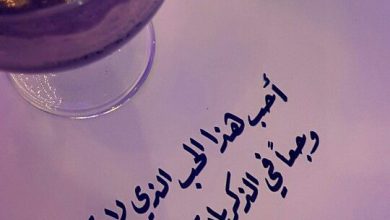 أحب هذا الحب الذي لا
وجعاً في الذكريات